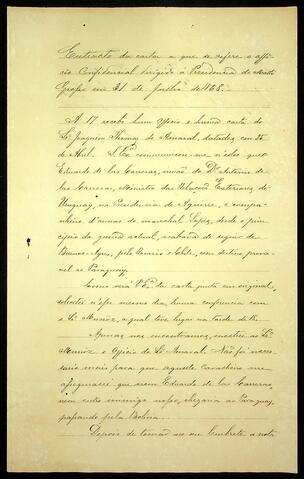 Extracto da carta a que se refere o offi-
cio Confidencial dirigido a Presidencia de Matto
Grosso em 31 de Julho de 1868.
A 17 recebi hum Officio e huma carta do
Sr. Joaquim Thomaz do Amaral, datados em 25
de Abril. S. Exa. communicou-me n'elles que
Eduardo de las Carreras, irmão do Dr. Antonio de
las Carreras, Ministro das Relações Exteriores do
Uruguay, na Presidencia de Aguirre, e compa-
nheiro d'armas do marechal Lopez, desde o prin-
cipio da guerra actual, acabava de seguir de
Buenos-Ayres, pelo Rosario e Chile, com destino prova-
vel ao Paraguay.
Como verá V. Exa. da carta junta em original,
solicitei n'esse mesmo dia huma conferencia com
o Sr. Muñoz, a qual teve lugar na tarde de
Apenas nos encontramos, mostrei ao Sr.
Muñoz o Officio do Sr. Amaral. Não foi neces-
sario mais para que aquelle cavalheiro me
assegurasse que nem Eduardo de las Carreras,
nem outro inimigo nosso, chegaria ao Paraguay,
passando pela Bolivia.
Depois de tomar em seu a nota